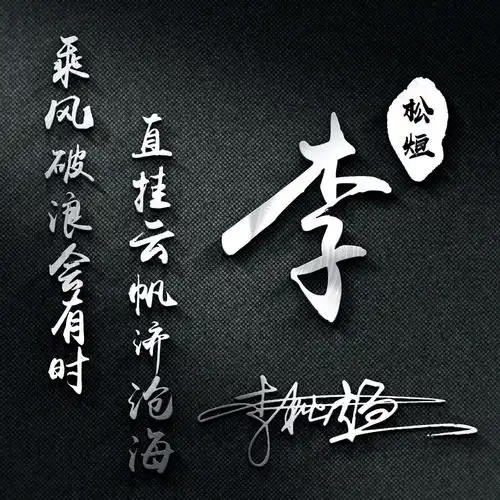 乘风破浪会有时
直挂云帆济沧海
李
松烜